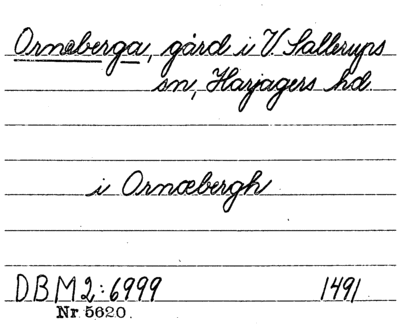 Ornæberga, gård i V. Sallerups
sn, Harjagers hd.
i Ornæbergh
DBM2:6999 1491
Nr 5620.